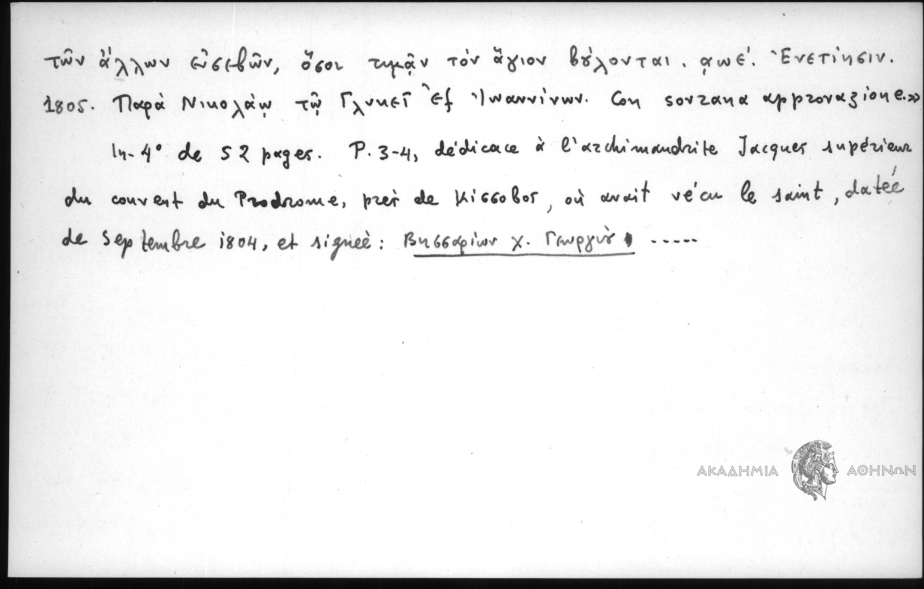 τῶν ἄλλων εὐσεβῶν, ὅσοι τιμᾷν τὸν ἅγιον βούλονται. ͵αωέ. Ἐνετίησιν.
1805. Παρὰ Νικολάῳ τῷ Γλυκεῖ Ἐξ Ἰωαννίνων. Con sovrana approvazione.»
In-4° de 52 pages. P. 3-4, dédicace à l'archimandrite Jacques supérieur
du couvent du Prodrome, près de Κίσσοβος, où avait vécu le saint, datée
de Septembre 1804, et signée: Βησσαρίων χ. Γεωργίου .....
ΑΚΑΔΗΜΙΑ ΑΘΗΝΩΝ